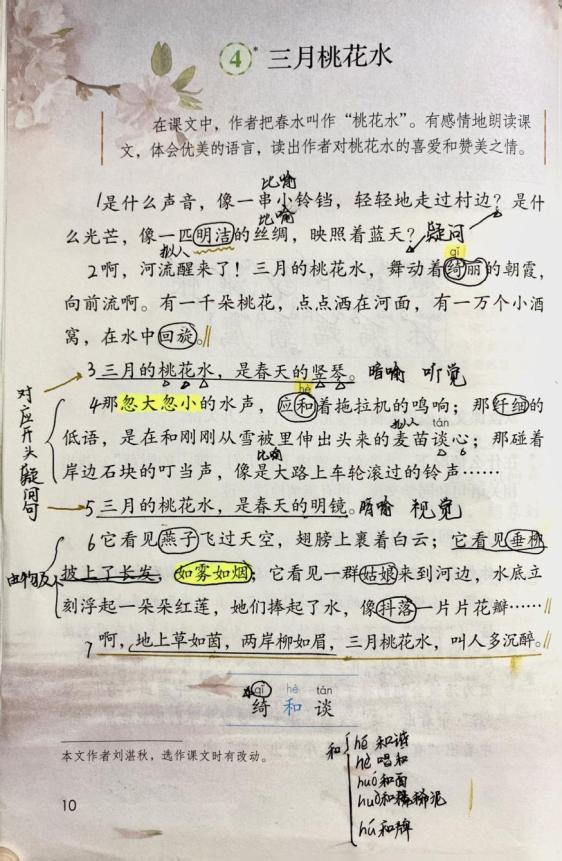 4* 三月桃花水
在课文中，作者把春水叫作“桃花水”。有感情地朗读课
文，体会优美的语言，读出作者对桃花水的喜爱和赞美之情。
比喻
1是什么声音，像一串小铃铛，轻轻地走过村边？是什
比喻
么光芒，像一匹明洁的丝绸，映照着蓝天？疑问
拟人
qǐ
2啊，河流醒来了！三月的桃花水，舞动着绮丽的朝霞，
向前流啊。有一千朵桃花，点点洒在河面，有一万个小酒
窝，在水中回旋。
3三月的桃花水，是春天的竖琴。暗喻 听觉
hè
对应开头疑问句
4那忽大忽小的水声，应和着拖拉机的鸣响；那纤细的
拟人 tán
低语，是在和刚刚从雪被里伸出头来的麦苗谈心；那碰着
比喻
岸边石块的叮当声，像是大路上车轮滚过的铃声……
5三月的桃花水，是春天的明镜。暗喻 视觉
6它看见燕子飞过天空，翅膀上裹着白云；它看见垂柳
由物及人
披上了长发，如雾如烟；它看见一群姑娘来到河边，水底立
刻浮起一朵朵红莲，她们捧起了水，像抖落一片片花瓣……
7啊，地上草如茵，两岸柳如眉，三月桃花水，叫人多沉醉。
qǐ hè tán
绮 和 谈
本文作者刘湛秋，选作课文时有改动。
和
hé 和谐
hè 唱和
huó 和面
huò 和稀泥
hú 和牌
10